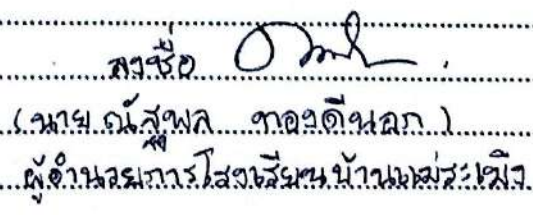 ลงชื่อ
(นาย ณัฐพล ทองดีนอก)
ผู้อำนวยการโรงเรียนบ้านแม่ระเมิง